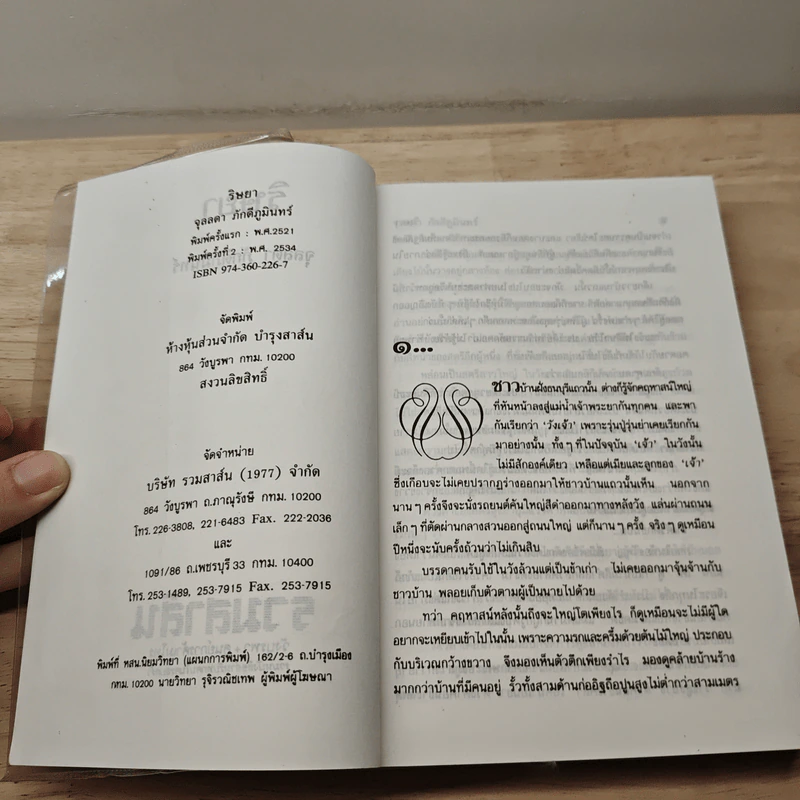 ริษยา
จุลลดา ภักดีภูมินทร์
พิมพ์ครั้งแรก : พ.ศ.2521
พิมพ์ครั้งที่ 2 : พ.ศ. 2534
ISBN 974-360-226-7
จัดพิมพ์
ห้างหุ้นส่วนจำกัด บำรุงสาส์น
864 วังบูรพา กทม. 10200
สงวนลิขสิทธิ์
จัดจำหน่าย
บริษัท รวมสาส์น (1977) จำกัด
864 วังบูรพา ถ.ภาณุรังษี กทม. 10200
โทร. 226-3808, 221-6483 Fax. 222-2036
และ
1091/86 ถ.เพชรบุรี 33 กทม. 10400
โทร. 253-1489, 253-7915 Fax. 253-7915
พิมพ์ที่ หสน.นิยมวิทยา (แผนกการพิมพ์) 162/2-6 ถ.บำรุงเมือง
กทม. 10200 นายวิทยา รุจิรวณิชเทพ ผู้พิมพ์ผู้โฆษณา
๑...
ชาวบ้านฝั่งธนบุรีแถวนั้น ต่างก็รู้จักคฤหาสน์ใหญ่
ที่หันหน้าลงสู่แม่น้ำเจ้าพระยากันทุกคน และพา
กันเรียกว่า 'วังเจ้า' เพราะรุ่นปู่รุ่นย่าเคยเรียกกัน
มาอย่างนั้น ทั้งๆ ที่ในปัจจุบัน 'เจ้า' ในวังนั้น
ไม่มีสักองค์เดียว เหลือแต่เมียและลูกของ 'เจ้า'
ซึ่งเกือบจะไม่เคยปรากฏร่างออกมาให้ชาวบ้านแถวนั้นเห็น นอกจาก
นานๆ ครั้งจึงจะนั่งรถยนต์คันใหญ่สีดำออกมาทางหลังวัง แล่นผ่านถนน
เล็กๆ ที่ตัดผ่านกลางสวนออกสู่ถนนใหญ่ แต่ก็นานๆ ครั้ง จริงๆ ดูเหมือน
ปีหนึ่งจะนับครั้งถ้วนว่าไม่เกินสิบ
บรรดาคนรับใช้ในวังล้วนแต่เป็นข้าเก่า ไม่เคยออกมาจุ้นจ้านกับ
ชาวบ้าน พลอยเก็บตัวตามผู้เป็นนายไปด้วย
ทว่า คฤหาสน์หลังนั้นถึงจะใหญ่โตเพียงไร ก็ดูเหมือนจะไม่มีผู้ใด
อยากจะเหยียบเข้าไปในนั้น เพราะความรกและครึ้มด้วยต้นไม้ใหญ่ ประกอบ
กับบริเวณกว้างขวาง จึงมองเห็นตัวตึกเพียงรำไร มองดูคล้ายบ้านร้าง
มากกว่าบ้านที่มีคนอยู่ รั้วทั้งสามด้านก่ออิฐถือปูนสูงไม่ต่ำกว่าสามเมตร